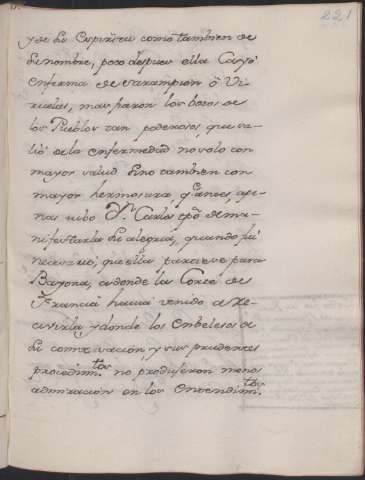 221
y de su espiritu como tambien de
su nombre, poco despues ella Cayó
enferma de sarampion ó Vi-
ruelas, mas fueron los votos de
los Pueblos tan poderosos, que sa-
lió de la enfermedad no solo con
mayor salud sino tambien con
mayor hermosura, y antes, ape-
nas uvo Dn. Carlos tpõ. de ma-
nifestarla su alegria, quando fué
necesario, que ella partiese para
Bayona, adonde la Corte de
Francia havia venido a Re-
civirla, y donde los embelesos de
su conversacion, y sus prudentes
procedimtos. no produjeron menos
admiracion en los entendimtos.